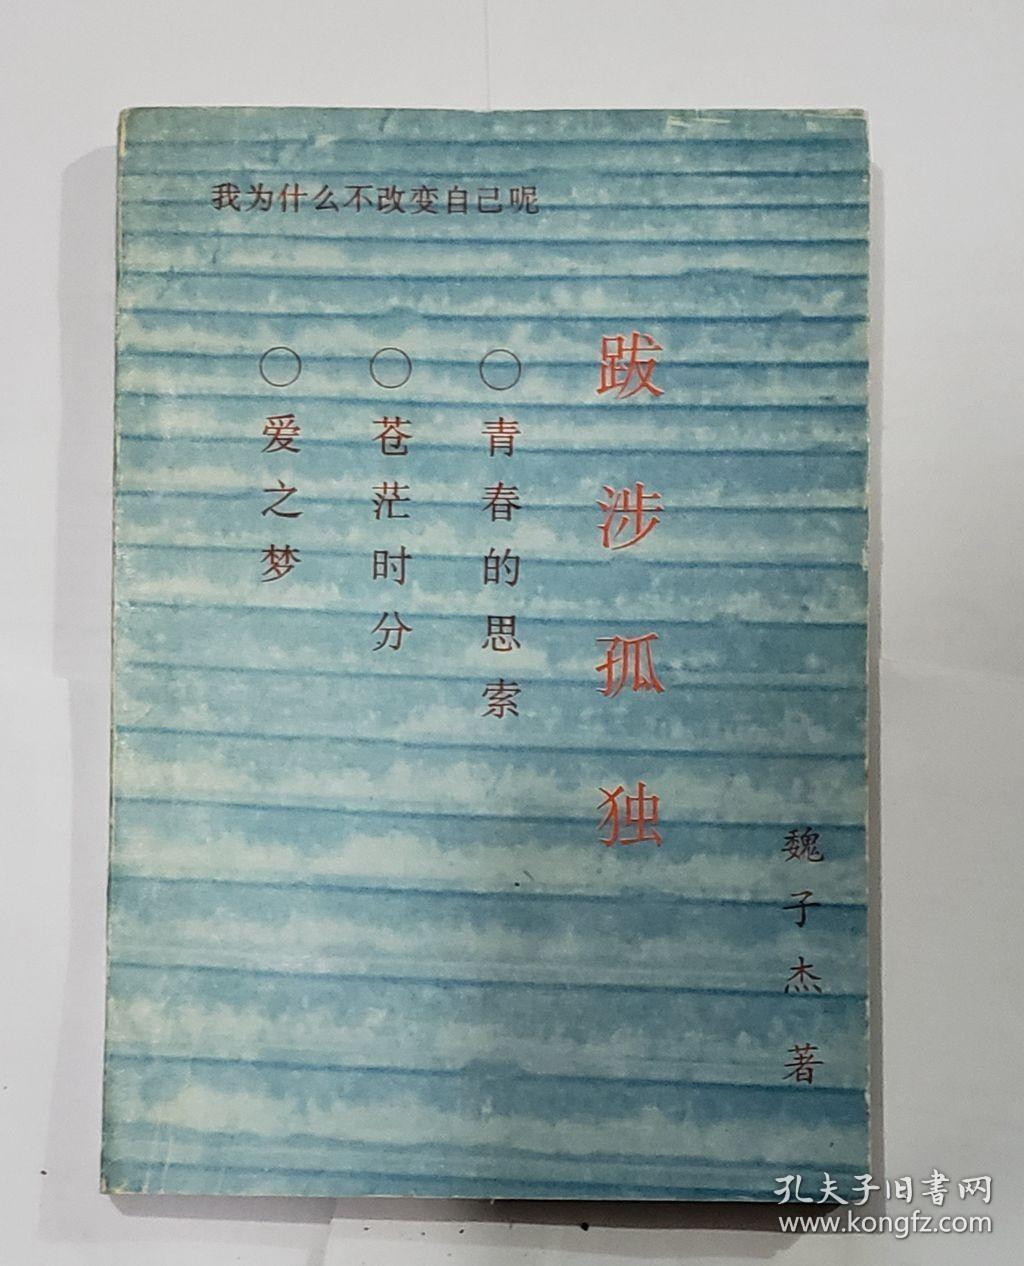 我为什么不改变自己呢
跋涉孤独
○青春的思索
○苍茫时分
○爱之梦
魏子杰 著
孔夫子旧書网
www.kongfz.com